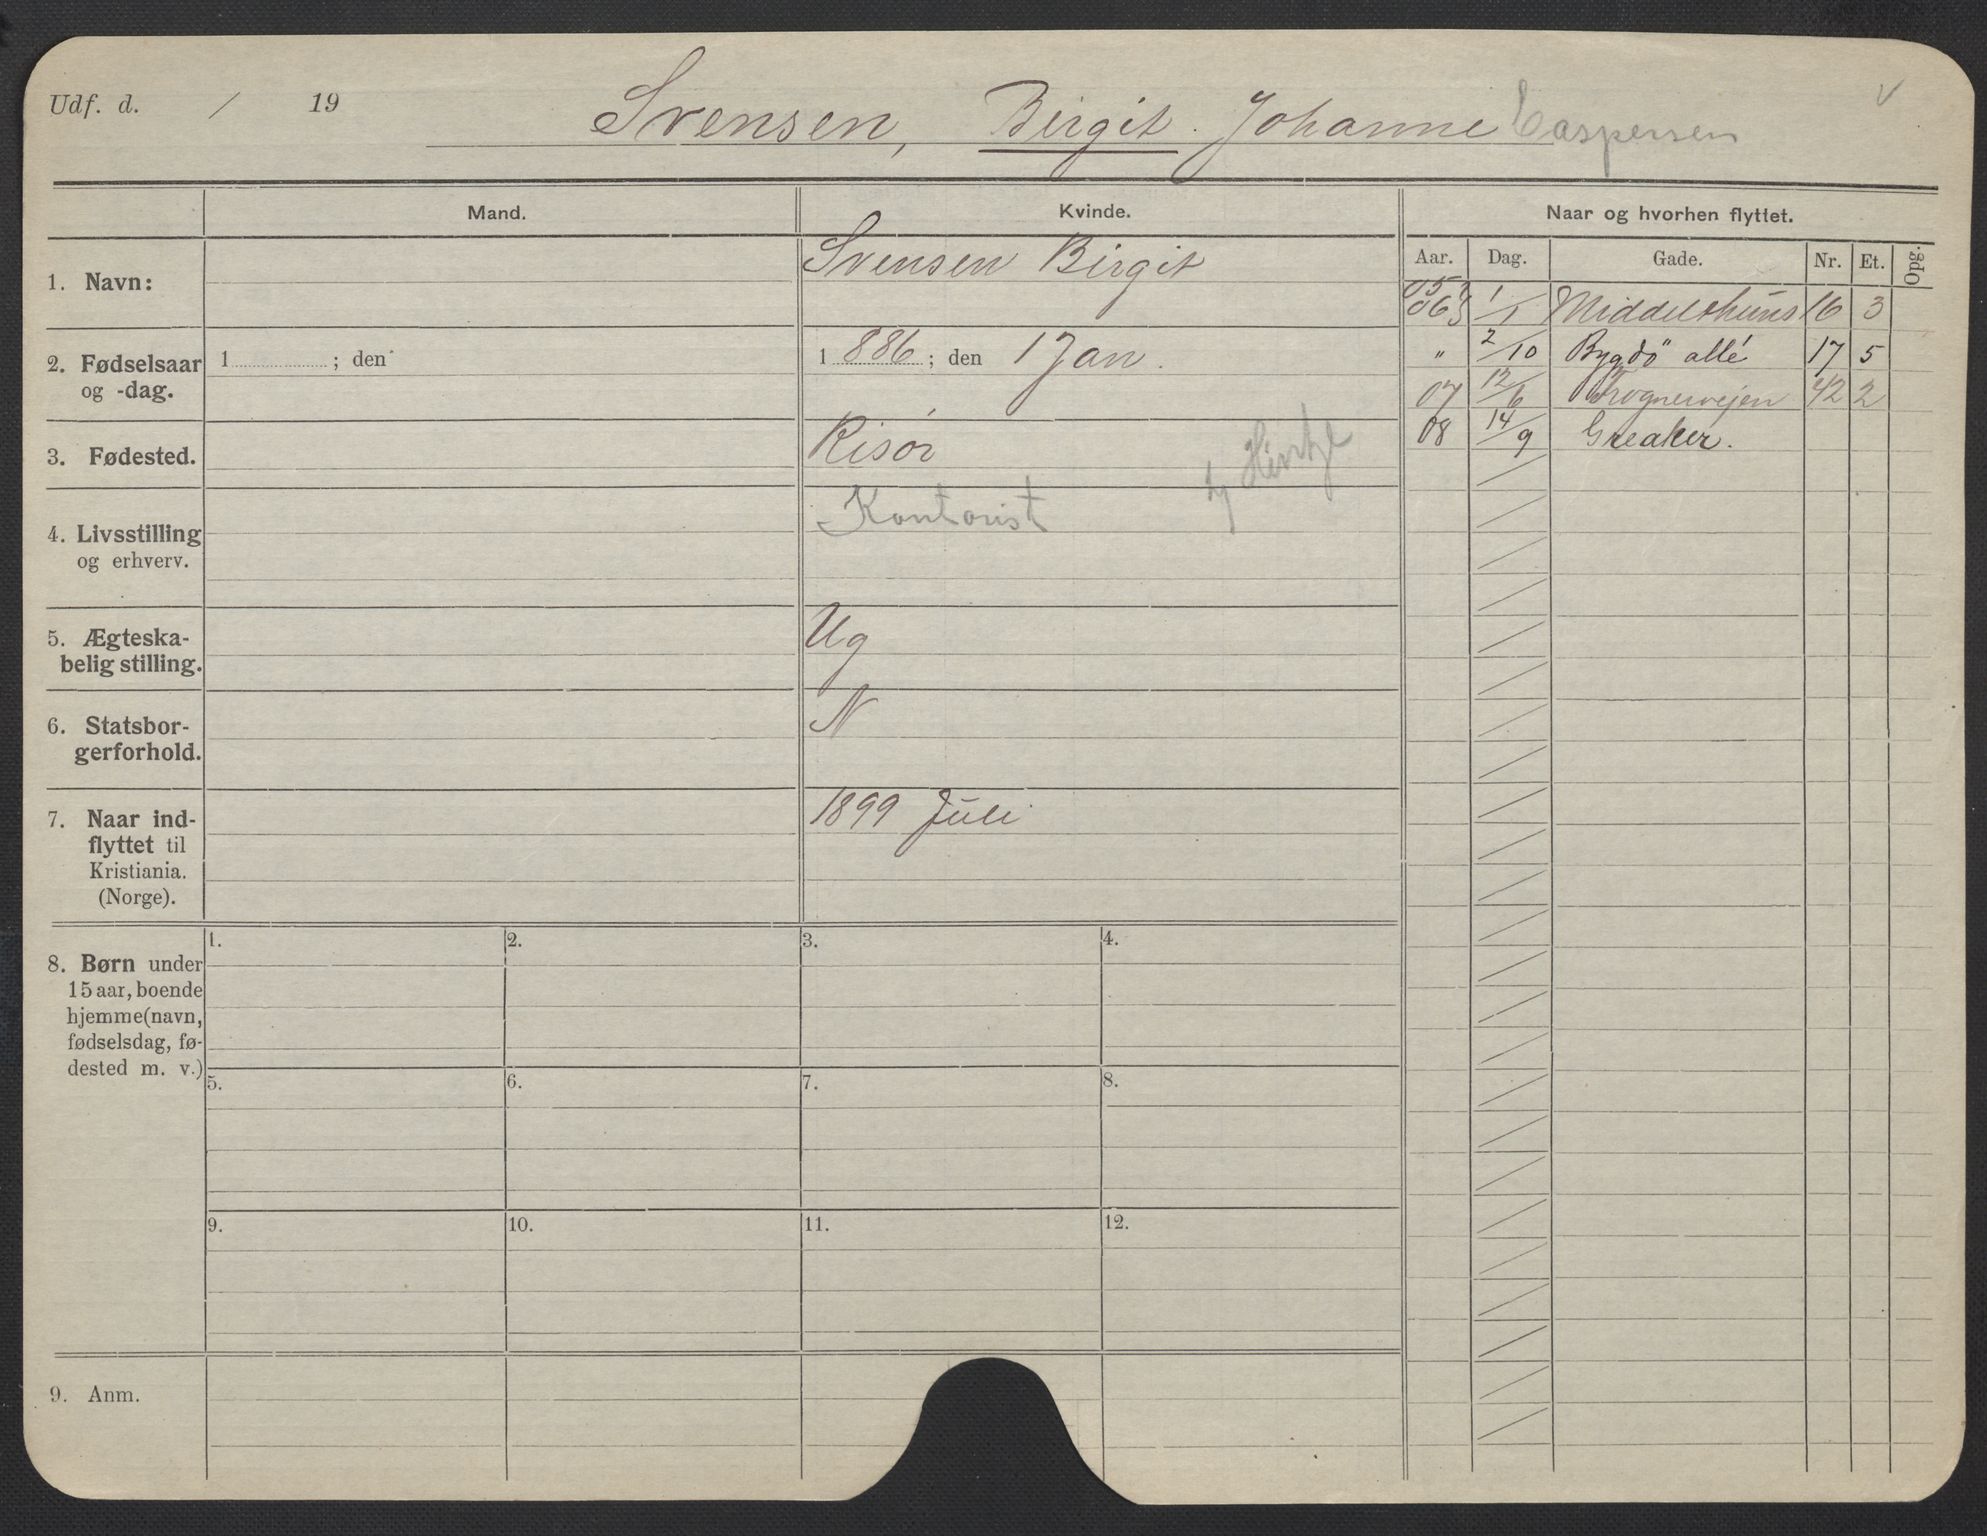 Udf. d. / 19 Svensen, Birgit Johanne Caspersen
Mand. Kvinde. Naar og hvorhen flyttet.
Aar. Dag. Gade. Nr. Et. Opg.
1. Navn: Svensen Birgit
2. Fødselsaar
og -dag.
1 ; den
1 886 ; den 1 Jan.
3. Fødested. Risör
4. Livsstilling
og erhverv.
Kontorist
5. Ægteska-
belig stilling.
Ug
6. Statsbor-
gerforhold.
N
7. Naar ind-
flyttet til
Kristiania.
(Norge).
1899 Juli
05
06 1/1 Middelthuns 16 3
" 2/10 Bygdö allé 17 5
07 12/6 Frognervejen 42 2
08 14/9 Greaker.
8. Børn under
15 aar, boende
hjemme (navn,
fødselsdag, fø-
dested m. v.)
1. 2. 3. 4.
5. 6. 7. 8.
9. 10. 11. 12.
9. Anm.